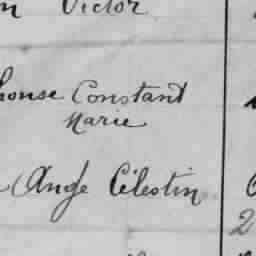 Victor
Constant
Marie
Ange Célestin
2